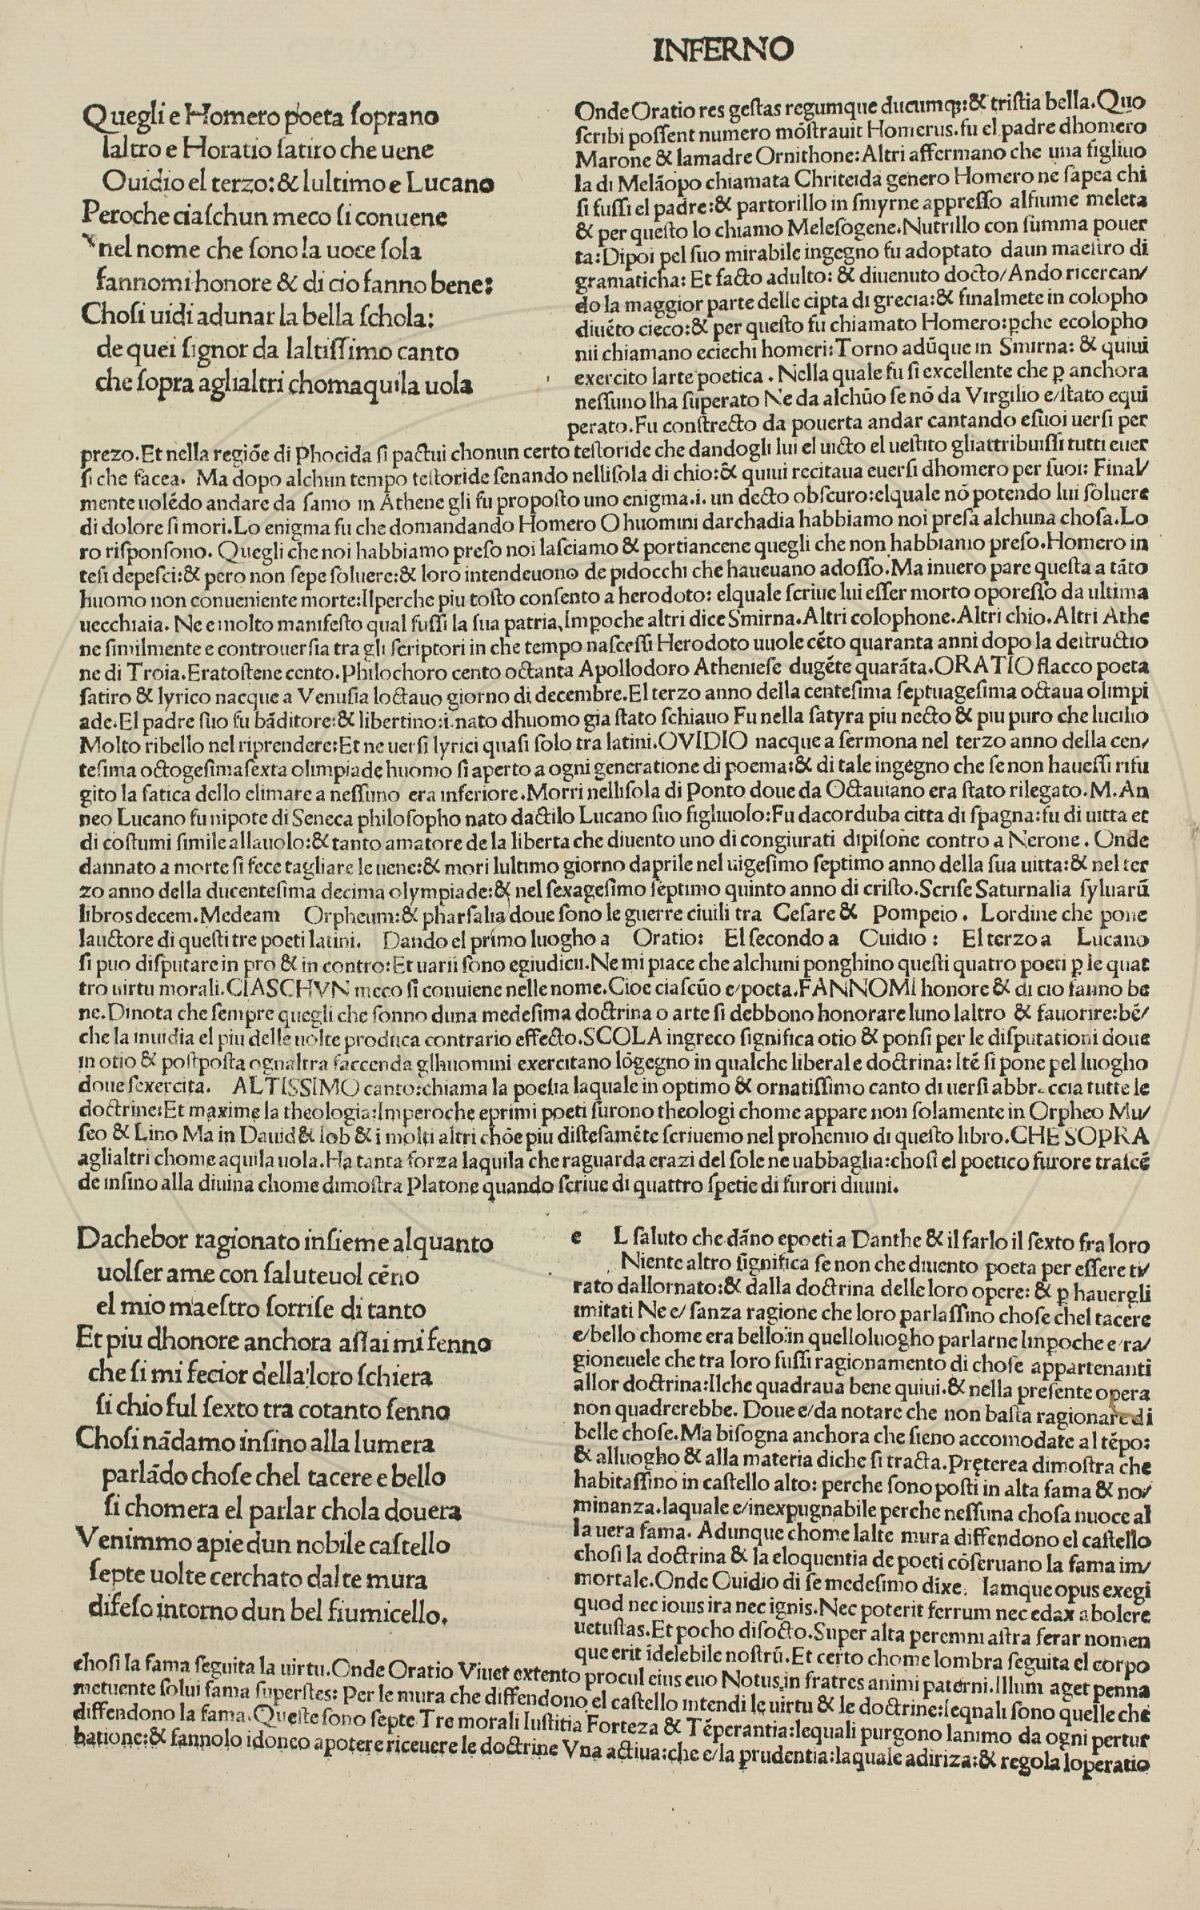 INFERNO
Quegli e Homero poeta soprano
laltro e Horatio satiro che uene
Ouidio el terzo: & lultimo e Lucano
Peroche ciaschun meco si conuene
nel nome che sono la uoce sola
fannomi honore & di cio fanno bene:
Chosi uidi adunar la bella schola:
de quei signor da laltissimo canto
che sopra aglialtri chomaquila uola
Onde Oratio res gestas regumque ducumq;: & tristia bella. Quo
scribi possent numero mõstrauit Homerus. fu el padre dhomero
Marone & lamadre Ornithone: Altri affermano che una figliuo
la di Melãopo chiamata Chriteida genero Homero ne sapea chi
si fussi el padre: & partorillo in smyrne appresso alfiume meleta
& per questo lo chiamo Melesogene. Nutrillo con summa pouer
ta: Dipoi pel suo mirabile ingegno fu adoptato daun maestro di
gramaticha: Et facto adulto: & diuenuto docto/ Ando ricercan/
do la maggior parte delle cipta di grecia: & finalmete in colopho
diuéto cieco: & per questo fu chiamato Homero: pche ecolopho
nii chiamano eciechi homeri: Torno adũque in Smirna: & quiui
exercito larte poetica. Nella quale fu si excellente che p anchora
nessuno lha superato Ne da alchũo se nõ da Virgilio e/stato equi
perato. Fu constrecto da pouerta andar cantando esuoi uersi per
prezo. Et nella regiõe di Phocida si pactui chonun certo testoride che dandogli lui el uicto el uestito gliattribuissi tutti euer
si che facea. Ma dopo alchun tempo testoride senando nellisola di chio: & quiui recitaua euersi dhomero per suoi: Final/
mente uolédo andare da samo in Athene gli fu proposto uno enigma .i. un decto obscuro: elquale nõ potendo lui soluere
di dolore si mori. Lo enigma fu che domandando Homero O huomini darchadia habbiamo noi presa alchuna chosa. Lo
ro risponsono. Quegli che noi habbiamo preso noi lasciamo & portiancene quegli che non habbiamo preso. Homero in
tesi depesci: & pero non sepe soluere: & loro intendeuono de pidocchi che haueuano adosso. Ma inuero pare questa a tãto
huomo non conueniente morte: Ilperche piu tosto consento a herodoto: elquale scriue lui esser morto oporesso da ultima
uecchiaia. Ne e molto manifesto qual fussi la sua patria, Impoche altri dice Smirna. Altri colophone. Altri chio. Altri Athe
ne similmente e controuersia tra gli scriptori in che tempo nascessi Herodoto uuole céto quaranta anni dopo la destructio
ne di Troia. Eratostene cento. Philochoro cento octanta Apollodoro Atheniese dugéte quarãta. ORATIO flacco poeta
satiro & lyrico nacque a Venusia loctauo giorno di decembre. El terzo anno della centesima septuagesima octaua olimpi
ade. El padre suo fu bãditore: & libertino: i. nato dhuomo gia stato schiauo Fu nella satyra piu necto & piu puro che lucilio
Molto ribello nel riprendere: Et ne uersi lyrici quasi solo tra latini. OVIDIO nacque a sermona nel terzo anno della cen/
tesima octogesima sexta olimpiade huomo si aperto a ogni generatione di poema: & di tale ingegno che se non hauessi rifu
gito la fatica dello elimare a nessuno era inferiore. Morri nellisola di Ponto doue da Octauiano era stato rilegato. M. An
neo Lucano fu nipote di Seneca philosopho nato dactilo Lucano suo figliuolo: Fu dacorduba citta di spagna: fu di uitta et
di costumi simile allauolo: & tanto amatore de la liberta che diuento uno di congiurati dipisone contro a Nerone. Onde
dannato a morte si fece tagliare le uene: & mori lultimo giorno daprile nel uigesimo septimo anno della sua uitta: & nel ter
zo anno della ducentesima decima olympiade: & nel sexagesimo septimo quinto anno di cristo. Scrise Saturnalia syluarũ
libros decem. Medeam Orpheum: & pharsalia doue sono le guerre ciuili tra Cesare & Pompeio. Lordine che pone
lauctore di questi tre poeti latini. Dando el primo luogho a Oratio: El secondo a Ouidio: El terzo a Lucano
si puo disputare in pro & in contro: Et uarii sono egiudicii. Ne mi piace che alchuni ponghino questi quatro poeti p le quat
tro uirtu morali. CIASCHVN meco si conuiene nelle nome. Cioe ciascũo e/poeta. FANNOMI honore & di cio fanno be
ne. Dinota che sempre quegli che sonno duna medesima doctrina o arte si debbono honorare luno laltro & fauorire: bé/
che la inuidia el piu delle uolte produca contrario effecto. SCOLA ingreco significa otio & ponsi per le disputationi doue
in otio & postposta ognaltra faccenda glhuomini exercitano lõgegno in qualche liberale doctrina: Ité si pone pel luogho
doue sexercita. ALTISSIMO canto: chiama la poesia laquale in optimo & ornatissimo canto di uersi abbraccia tutte le
doctrine: Et maxime la theologia: Imperoche eprimi poeti furono theologi chome appare non solamente in Orpheo Mu/
seo & Lino Ma in Dauid & Iob & i molti altri chõe piu distesaméte scriuemo nel prohemio di questo libro. CHE SOPRA
aglialtri chome aquila uola. Ha tanta forza laquila che raguarda erazi del sole ne uabbaglia: chosi el poetico furore trascé
de insino alla diuina chome dimostra Platone quando scriue di quattro spetie di furori diuini.
Dachebor ragionato insieme alquanto
uolser ame con saluteuol céno
el mio maestro sorrise di tanto
Et piu dhonore anchora assai mi fenno
che si mi fecior della loro schiera
si chio ful sexto tra cotanto senno
Chosi nãdamo insino alla lumera
parlãdo chose chel tacere e bello
si chomera el parlar chola douera
Venimmo apie dun nobile castello
septe uolte cerchato dalte mura
difeso intorno dun bel fiumicello.
e L saluto che dãno epoeti a Danthe & il farlo il sexto fra loro
Niente altro significa se non che diuento poeta per essere ti/
rato dallornato: & dalla doctrina delle loro opere: & p hauergli
imitati Ne e/ sanza ragione che loro parlassino chose chel tacere
e/bello chome era bello in quello luogho parlarne Impoche e ra/
gioneuele che tra loro fussi ragionamento di chose appartenanti
allor doctrina: Ilche quadraua bene quiui. & nella presente opera
non quadrerebbe. Doue e/da notare che non basta ragionare di
belle chose. Ma bisogna anchora che sieno accomodate al tépo:
& alluogho & alla materia diche si tracta. Pręterea dimostra che
habitassino in castello alto: perche sono posti in alta fama & no/
minanza. laquale e/inexpugnabile perche nessuna chosa nuoce al
la uera fama. Adunque chome lalte mura diffendono el castello
chosi la doctrina & la eloquentia de poeti cõseruano la fama im/
mortale. Onde Ouidio di se medesimo dixe. Iamque opus exegi
quod nec iouis ira nec ignis. Nec poterit ferrum nec edax abolere
uetustas. Et pocho disocto. Super alta peremni astra ferar nomen
que erit idelebile nostrũ. Et certo chome lombra seguita el corpo
chosi la fama seguita la uirtu. Onde Oratio Viuet extento procul eius euo Notus in fratres animi paterni. Illum aget penna
metuente solui fama superstes: Per le mura che diffendono el castello intendi le uirtu & le doctrine: leqnali sono quelle che
diffendono la fama. Queste sono septe Tre morali Iustitia Forteza & Téperantia: lequali purgono lanimo da ogni pertur
batione: & fannolo idoneo apotere riceuere le doctrine Vna actiua: che e/la prudentia: laquale adiriza: & regola loperatio